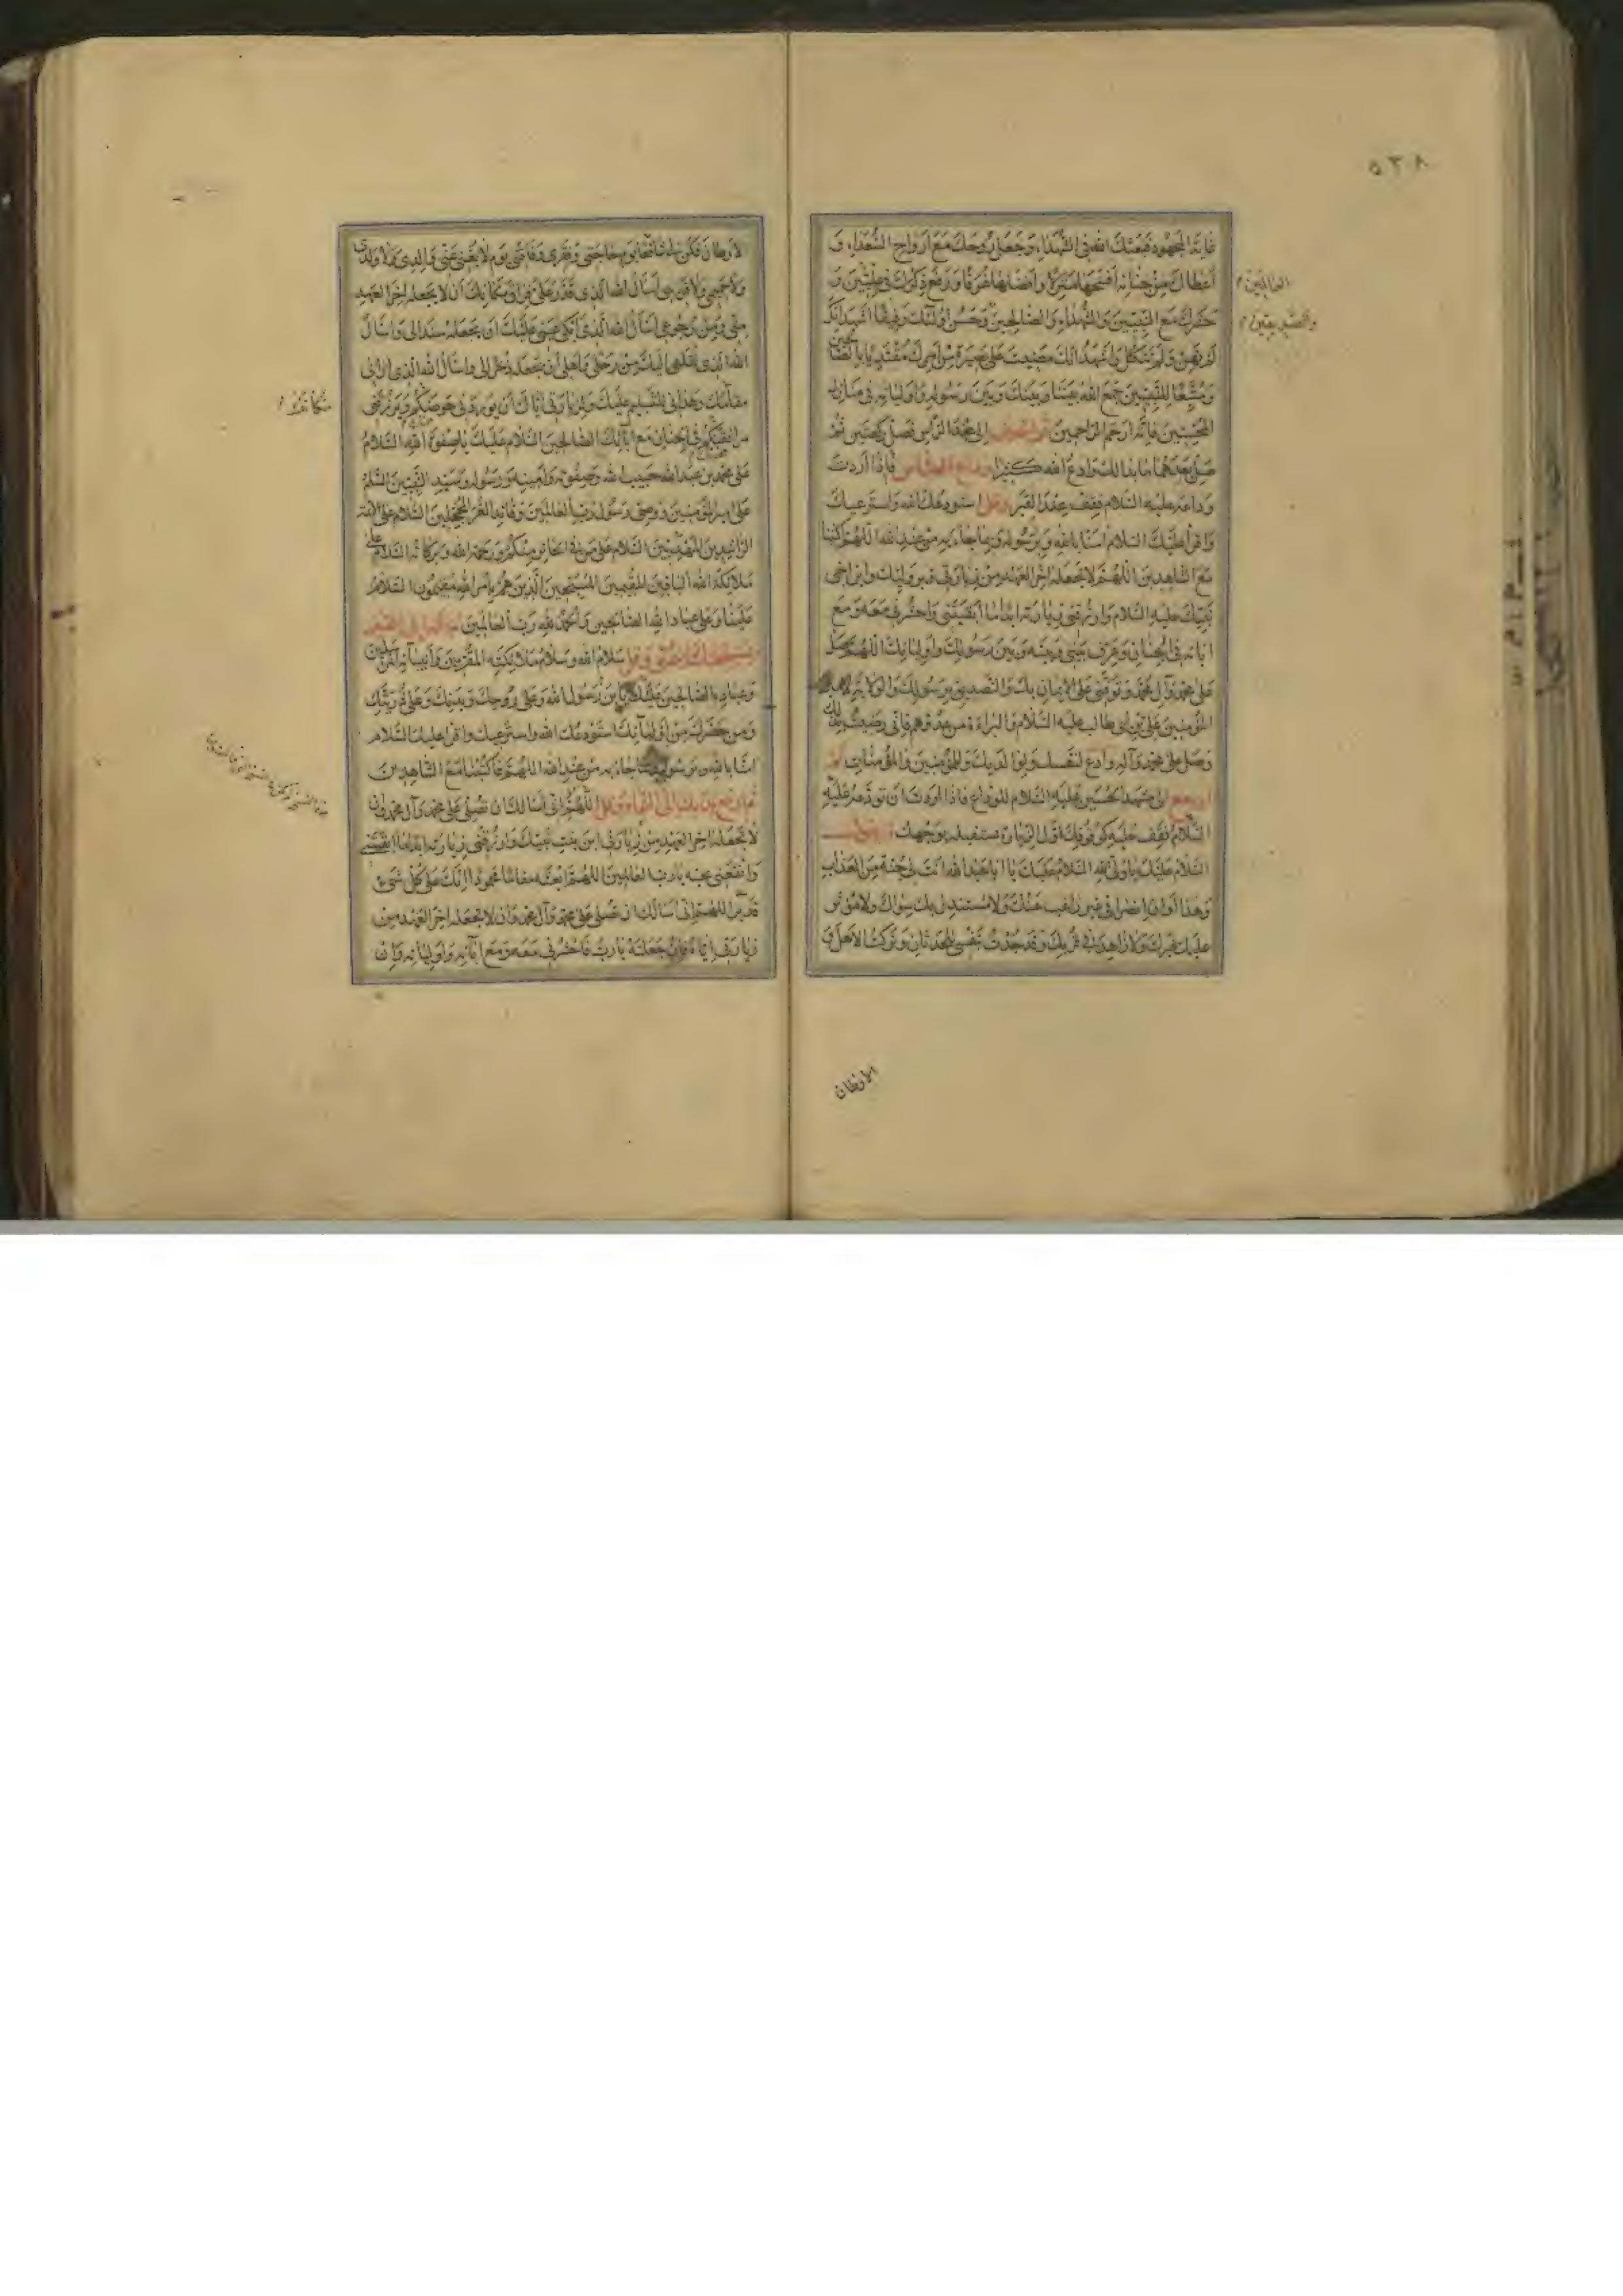 ٥٣٨
غاية المجهود فبعثك الله في الشهداء وجعل روحك مع ارواح السعداء و
اعطاك من جنانه افسحها منزلا وافضلها غرفا ورفع ذكرك في عليين و
العالمين
حشرك مع النبيين والشهداء والصالحين وحسن اولئك رفيقا اشهد انك
والصديقين
لم تهن ولم تنكل واشهد انك مضيت على بصيرة من امرك مقتديا بالصالحين
ومتبعا للنبيين جمع الله بيننا وبينك وبين رسوله واوليائه في منازل
المخبتين فانه ارحم الراحمين ثم انحرف الى عند الراس فصل ركعتين ثم
صل بعدهما ما بدا لك وادع الله كثيرا وداع العباس فاذا اردت
وداعه عليه السلام فقف عند القبر وقل استودعك الله واسترعيك
واقرأ عليك السلام امنا بالله وبرسوله وبما جاء به من عند الله اللهم اكتبنا
مع الشاهدين اللهم لا تجعله اخر العهد من زيارتي قبر وليك وابن اخي
نبيك عليه السلام وارزقني زيارته ابدا ما ابقيتني واحشرني معه ومع
ابائه في الجنان وعرف بيني وبينه وبين رسولك واوليائك اللهم صل
على محمد وآل محمد وتوفني على الايمان بك والتصديق برسولك والولاية
المؤمنين علي بن ابي طالب عليه السلام والبراءة من عدوهم فاني رضيت بذلك
وصل على محمد وآله وادع لنفسك ولوالديك وللمؤمنين والمؤمنات ثم
ارجع الى مشهد الحسين عليه السلام للوداع فاذا اردت ان تودعه عليه
السلام فقف عليه كوقوفك اول الزيارة تستقبله بوجهك وتقول
السلام عليك يا ولي الله السلام عليك يا ابا عبد الله انت لي جنة من العذاب
وهذا اوان انصرافي غير راغب عنك ولا مستبدل بك سواك ولا مؤثر
عليك غيرك ولا زاهد في قربك وقد جدت بنفسي للحدثان وتركت الاهل و
الاوطان
لاوطان فكن لي شافعا يوم حاجتي وفقري وفاقتي يوم لا يغني عني والدي ولا ولدي
ولا حميمي ولا قريبي اسأل الله الذي قدر علي فراق مكانك ان لا يجعله اخر العهد
مني ومن رجوعي اسأل الله الذي ابكى عيني عليك ان يجعله سندا لي واسأل
الله الذي نقلني اليك من رحلي واهلي ان يجعله ذخرا لي واسأل الله الذي اراني
مقامك وهداني للتسليم عليك ولزيارتي اياك ان يوردني حوضكم ويرزقني
مرافقتكم في الجنان مع آبائك الصالحين السلام عليك يا صفوة الله السلام
على محمد بن عبد الله حبيب الله وصفوته وامينه ورسوله وسيد النبيين السلم
على امير المؤمنين ووصي رسول رب العالمين وقائد الغر المحجلين السلام على الائمة
الراشدين المهديين السلام على من في الحائر منكم ورحمة الله وبركاته السلام على
ملائكة الله الباقين المقيمين المسبحين الذين هم بامر الله مقيمون السلام
علينا وعلى عباد الله الصالحين والحمد لله رب العالمين ثم اشر الى القبر
بمسبحتك اليمنى وقل سلام الله وسلام ملائكته المقربين وانبيائه المرسلين
وعباده الصالحين عليك يا بن رسول الله وعلى روحك وبدنك وعلى ذريتك
ومن حضرك من اوليائك استودعك الله واسترعيك واقرأ عليك السلام
امنا بالله وبرسوله وبما جاء به من عند الله اللهم فاكتبنا مع الشاهدين
ثم ارفع يديك الى السماء وقل اللهم اني اسألك ان تصلي على محمد وآل محمد وان
لا تجعله اخر العهد من زيارتي ابن بنت نبيك وارزقني زيارته ابدا ما ابقيتني
وانفعني بحبه يا رب العالمين اللهم ابعثه مقاما محمودا انك على كل شيء
قدير اللهم اني اسألك ان تصلي على محمد وآل محمد وان لا تجعله اخر العهد من
زيارتي اياه فان جعلته يا رب فاحشرني معه ومع ابآئه واوليائه وان